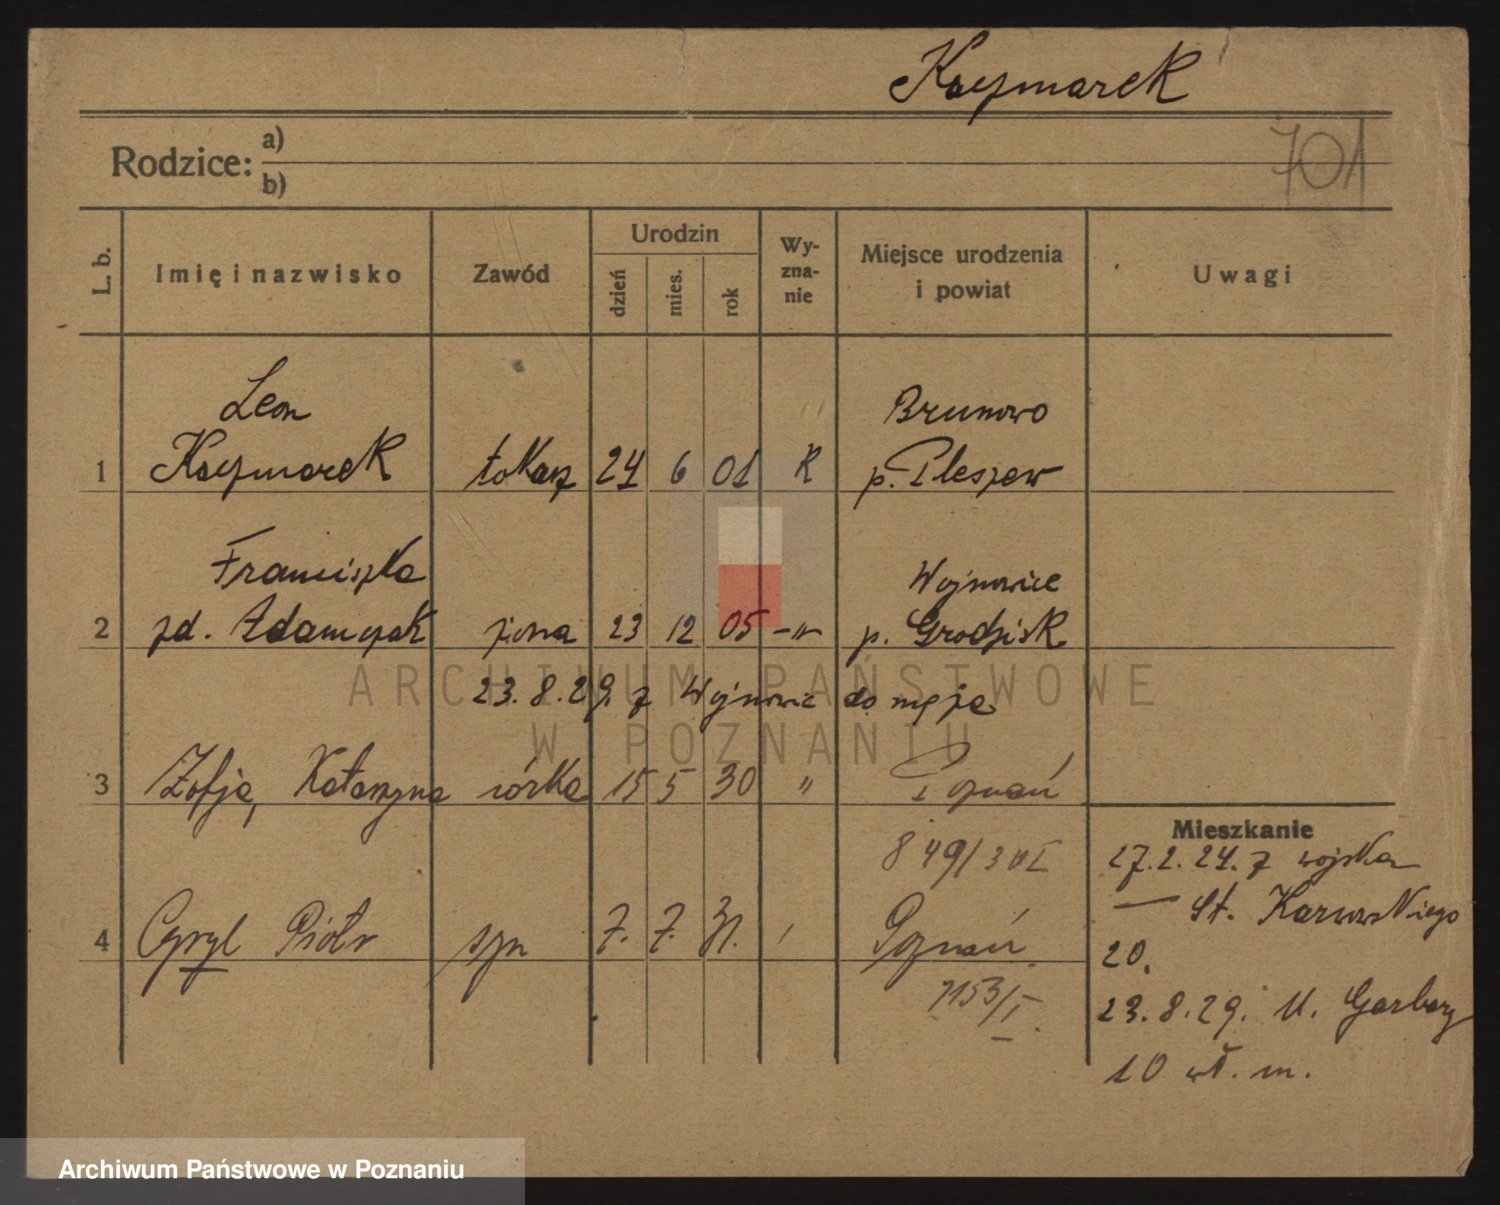 Kaczmarek
Rodzice: a)
b)
701
L. b.
Imię i nazwisko
Zawód
Urodzin
dzień
mies.
rok
Wy-
zna-
nie
Miejsce urodzenia
i powiat
Uwagi
Leon Brunowo
1 Kaczmarek tokarz 24 6 01 R p. Pleszew
Franciszka Wojnowice
2 zd. Adamczak żona 23 12 05 -"- p. Grodzisk
23.8.29. z Wojnowic do męża
3 Zofja, Katarzyna córka 15 5 30 " Poznań
849/30 I
4 Cyryl Piotr syn 7. 7. 31. Poznań
7153/I
Mieszkanie
27.2.24. z wojska
— St.
20.
23.8.29. U. Garbary
10 wł. m.
ARCHIWUM PAŃSTWOWE
W POZNANIU
Archiwum Państwowe w Poznaniu